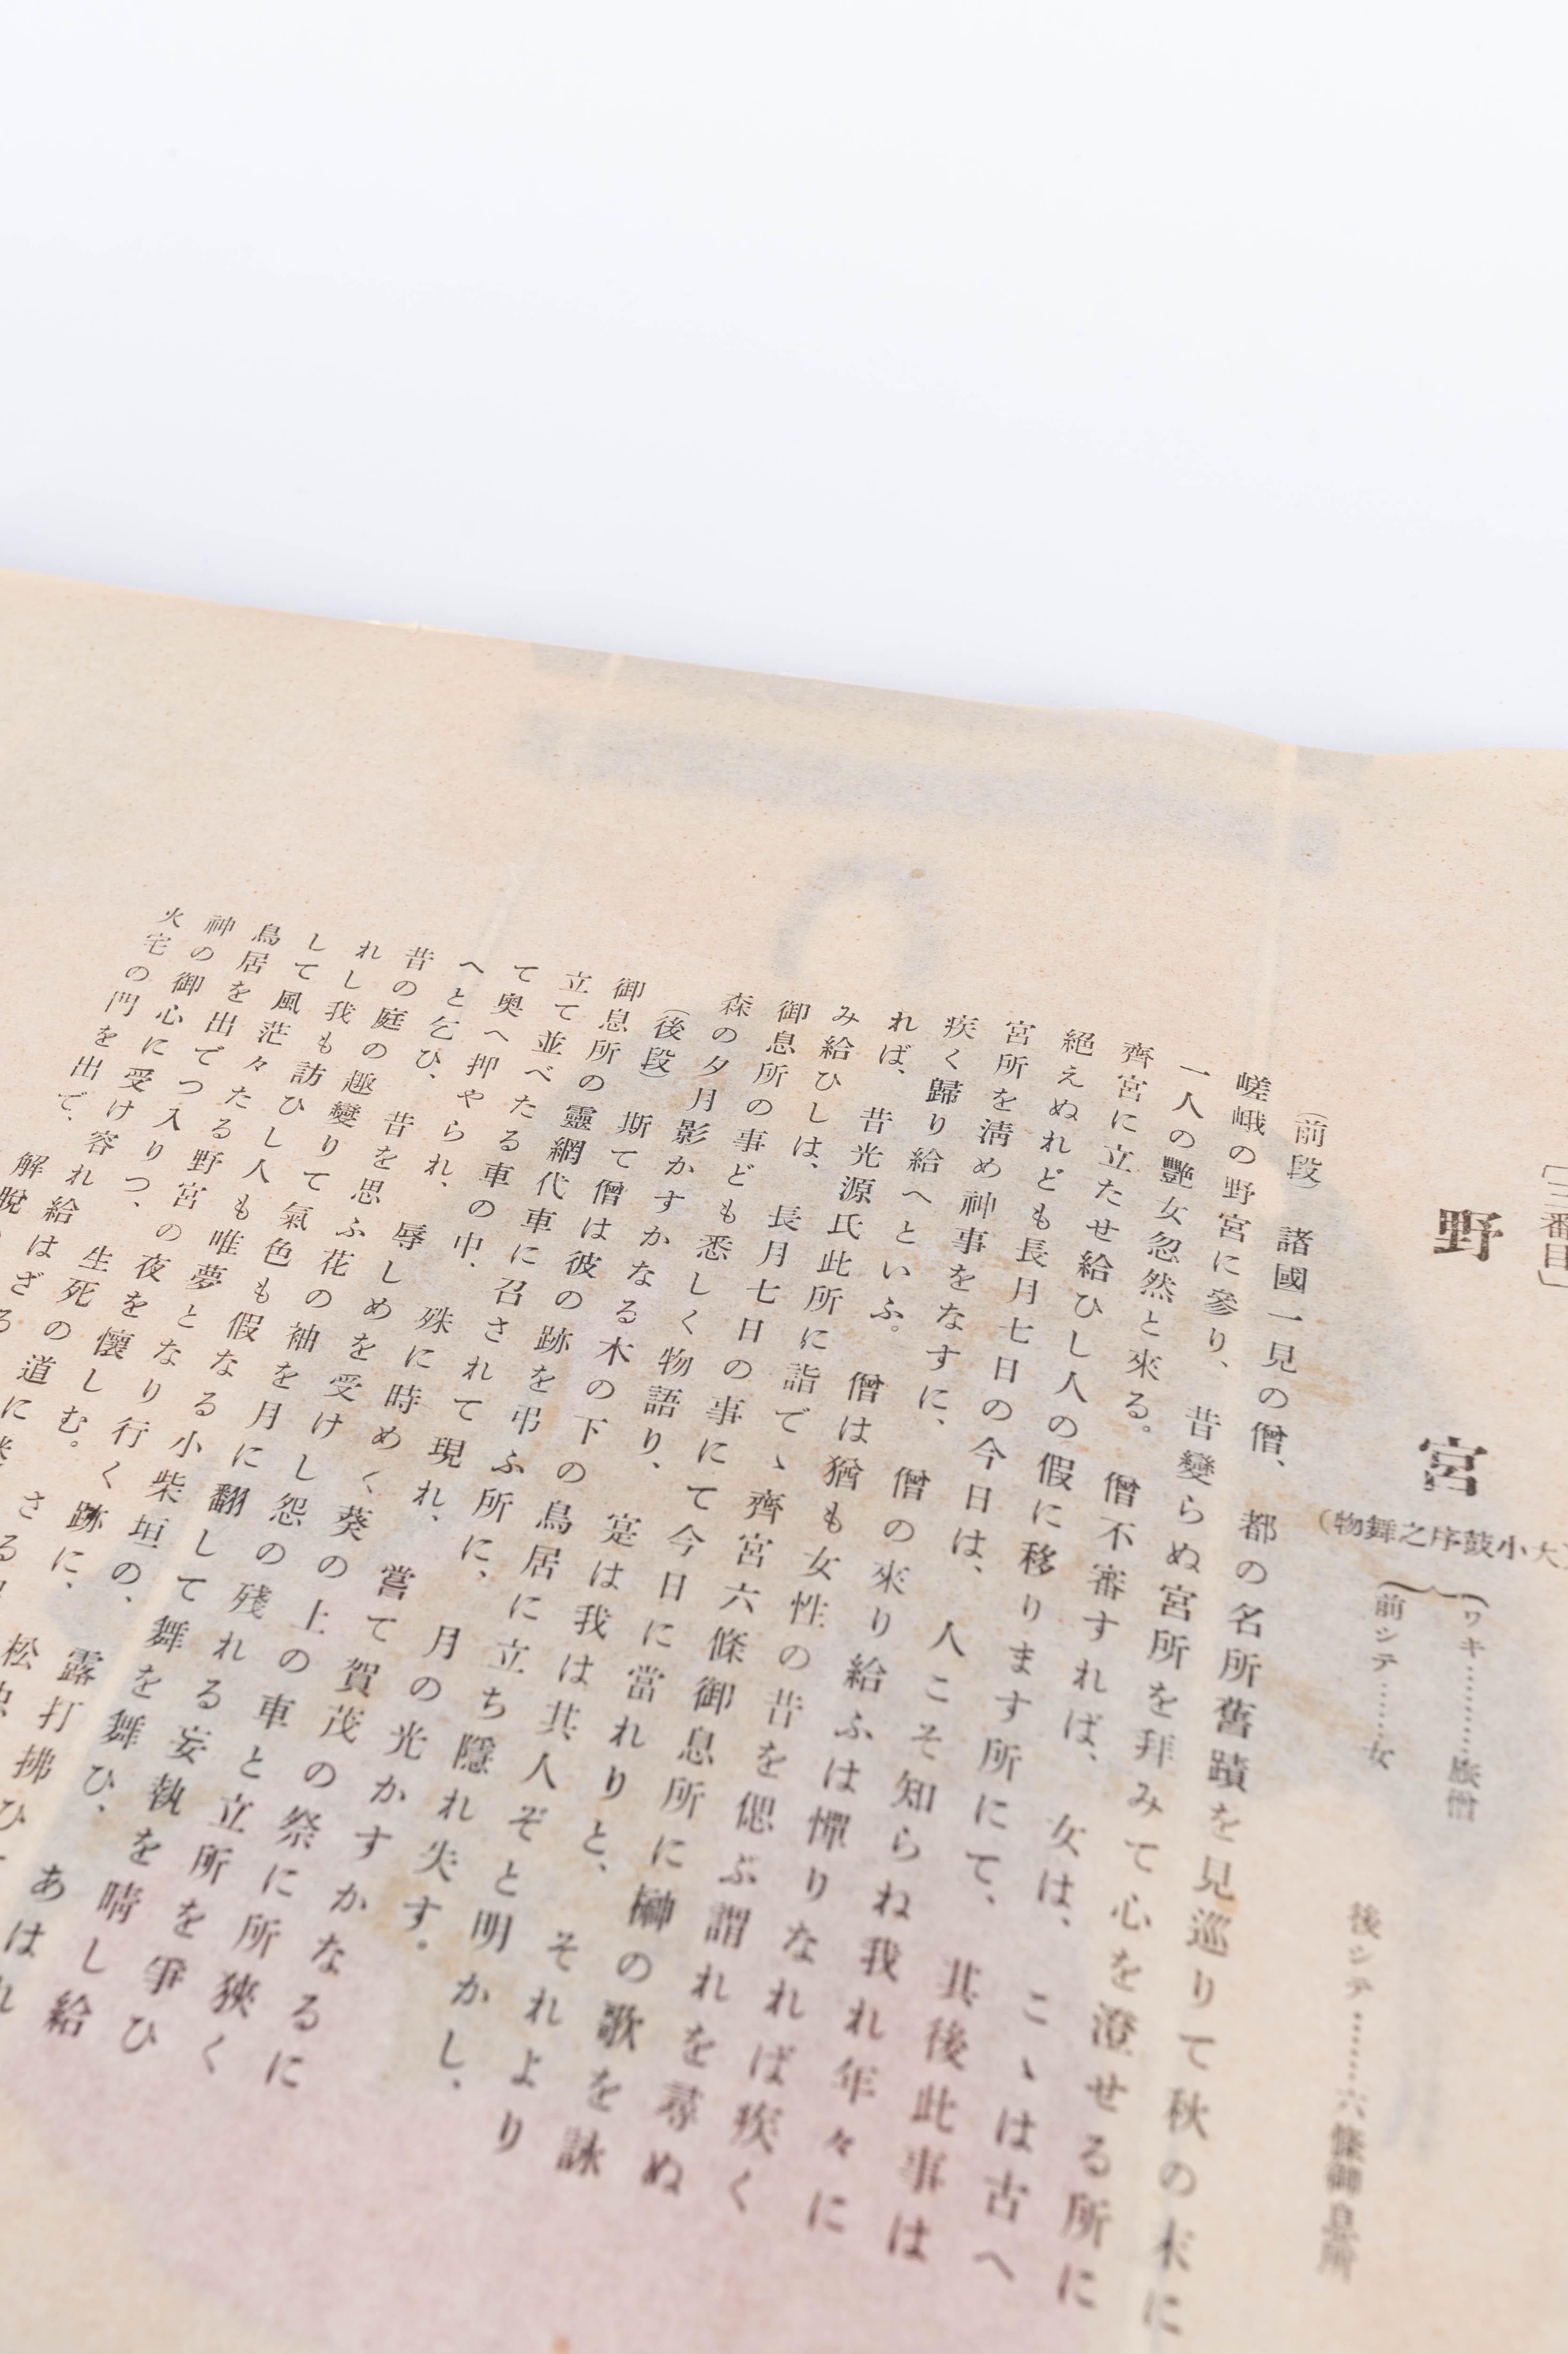 ［三番目］
野宮
（大小鼓序之舞物）
ワキ…………旅僧
前シテ……女
後シテ………六條御息所
（前段）　諸國一見の僧、　都の名所舊蹟を見巡りて秋の末に
嵯峨の野宮に參り、　昔變らぬ宮所を拜みて心を澄せる所に
一人の艷女忽然と來る。　僧不審すれば、　女は、　こゝは古へ
齊宮に立たせ給ひし人の假に移ります所にて、　其後此事は
絕えぬれども長月七日の今日は、　人こそ知らね我れ年々に
宮所を淸め神事をなすに、　僧の來り給ふは憚りなれば疾く
疾く歸り給へといふ。　僧は猶も女性の昔を偲ぶ謂れを尋ぬ
れば、　昔光源氏此所に詣で、齊宮六條御息所に榊の歌を詠
み給ひしは、　長月七日の事にて今日に當れりと、　それより
御息所の事ども悉しく物語り、　寔は我は其人ぞと明かし、
森の夕月影かすかなる木の下の鳥居に立ち隱れ失す。
（後段）　斯て僧は彼の跡を弔ふ所に、　月の光かすかなるに
御息所の靈網代車に召されて現れ、　嘗て賀茂の祭に所狹く
立て並べたる車の中、　殊に時めく葵の上の車と立所を爭ひ
て奧へ押やられ、　辱しめを受けし怨の殘れる妄執を晴し給
へと乞ひ、　昔を思ふ花の袖を月に翻して舞を舞ひ、　あはれ
昔の庭の趣變りて氣色も假なる小柴垣の、　露打拂ひ
れし我も訪ひし人も唯夢となり行く跡に、　松
して風茫々たる野宮の夜を懷しむ。　さる
鳥居を出でつ入りつ、　生死の道に
神の御心に受け容れ給はざる
火宅の門を出で、　解脫